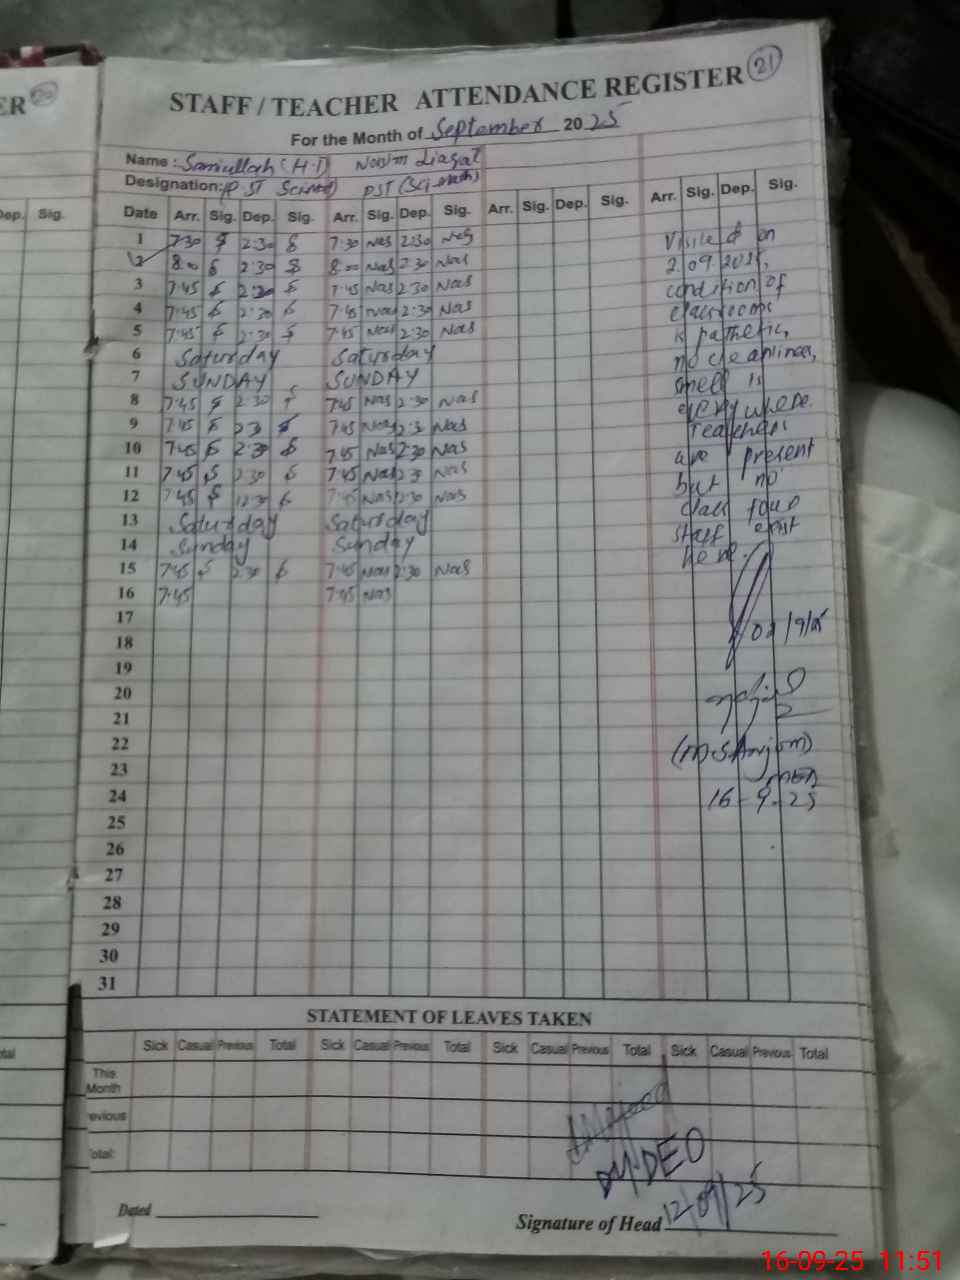 ER 20
STAFF / TEACHER ATTENDANCE REGISTER 21
For the Month of September 2025
Name : Samiullah (H.T)
Designation: PST
PST (Sci
Dep. Sig.
Date Arr. Sig. Dep. Sig. Arr. Sig. Dep. Sig. Arr. Sig. Dep. Sig. Arr. Sig. Dep. Sig.
1 7:30 2:30 7:30 Nas 2:30 Nas
2 8:00 2:30 8:00 Nas 2:30 Nas
3 7:45 2:30 7:45 Nas 2:30 Nas
4 7:45 2:30 7:45 Nas 2:30 Nas
5 7:45 2:30 7:45 Nas 2:30 Nas
6 Saturday Saturday
7 SUNDAY SUNDAY
8 7:45 2:30 7:45 Nas 2:30 Nas
9 7:45 2:3 7:45 Nas 2:3 Nas
10 7:45 2:30 7:45 Nas 2:30 Nas
11 7:45 2:30 7:45 Nas 2:30 Nas
12 7:45 2:30 7:45 Nas 2:30 Nas
13 Saturday Saturday
14 Sunday Sunday
15 7:45 2:30 7:45 Nas 2:30 Nas
16 7:45 7:45 Nas
17
18
19
20
21
22
23
24
25
26
27
28
29
30
31
Visited on
2.09.2025,
condition of
classrooms
is pathetic,
no cleanliness,
smell is
everywhere.
Teachers
are present
but no
class four
staff exist
here.
02/9/25
(M.S.Anjum)
16-9-25
STATEMENT OF LEAVES TAKEN
Sick Casual Previous Total Sick Casual Previous Total Sick Casual Previous Total Sick Casual Previous Total
This
Month
evious
otal:
otal
Dy. DEO
12/09/25
Dated
Signature of Head
16-09-25 11:51